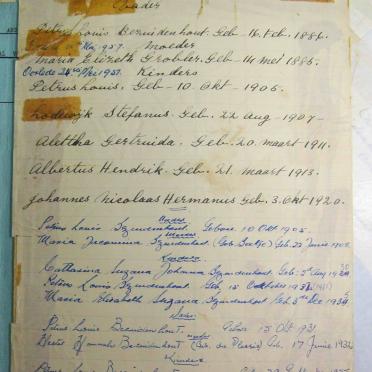 Vader
Petrus Louis Bezuidenhout. Geb - 16. Feb. 1886.
1957. Moeder
Maria Elizabeth Grobler. Geb - 14 mei 1886.
Oorlede 1957. Kinders
Petrus Louis. Geb - 10. Okt - 1905.
Lodewyk Stefanus. Geb. 22 Aug - 1907 -
Alettha Gertruida. Geb. 20. maart - 1911.
Albertus Hendrik. Geb. 21. maart - 1913.
Johannes Nicolaas Hermanus Geb. 3. Okt 1920.
Vader
Petrus Louis Bezuidenhout. Gebore 10 Okt 1905.
Moeder
Maria Jacomina Bezuidenhout (Geb. ) Geb. 22 Junie
Kinders
Catharina Susana Johanna Bezuidenhout Geb. 5 Aug
Petrus Louis Bezuidenhout Geb. 15 Oktober 1931
Maria Elizabeth Susana Bezuidenhout Geb 3 Des
Vader
Petrus Louis Bezuidenhout. Gebore 15 Okt 1931
Moeder
Hannah Bezuidenhout (Geb. du Plessis) Geb. 17 Junie 1932
Kinders
Petrus Louis